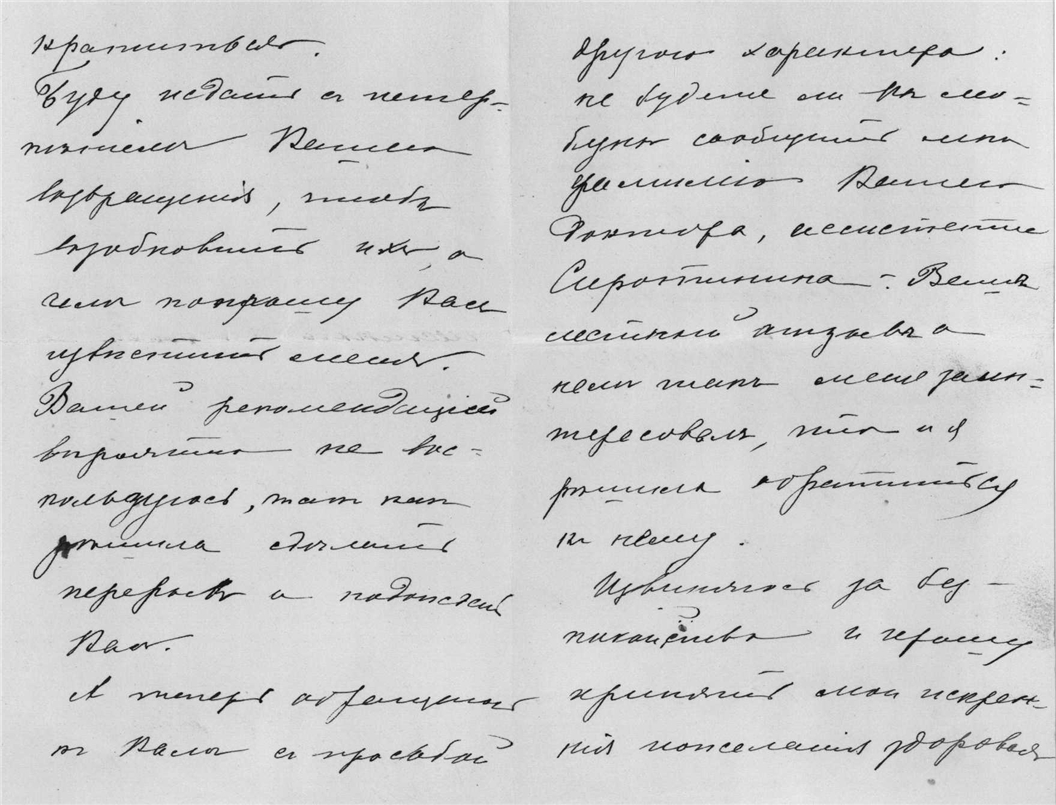 кратиться.
Буду ждать съ нетер-
пѣніемъ Вашего
возвращенія, чтобъ
возобновить ихъ, о
чемъ попрошу Васъ
извѣстить меня.
Вашей рекомендаціей
вѣроятно не вос-
пользуюсь, такъ какъ
рѣшила сдѣлать
перерывъ и подождать
Васъ.
А теперь обращаюсь
къ Вамъ съ просьбой
другого характера:
не будете ли Вы лю-
безны сообщить мнѣ
фамилію Вашего
Доктора, ассистента
Сиротинина – Вашъ
лестный отзывъ о
немъ такъ меня заин-
тересовалъ, что и я
рѣшила обратиться
къ нему.
Извиняюсь за без-
покойство и прошу
принять мои искрен-
нія пожеланія здоровья